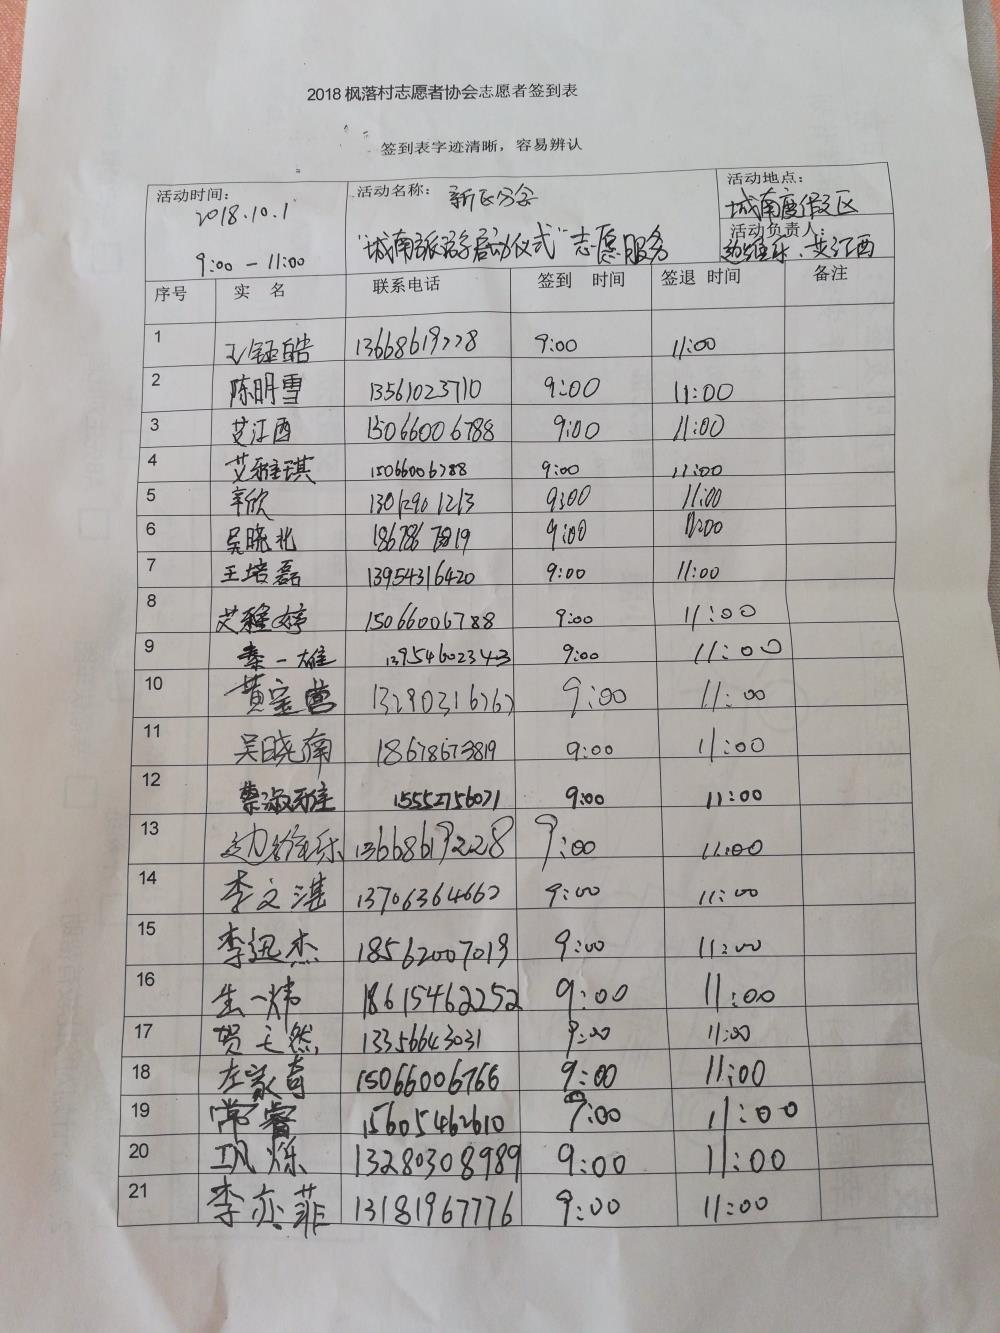 2018 枫落村志愿者协会志愿者签到表
签到表字迹清晰，容易辨认
活动时间： 活动名称： 新区分会 活动地点：
2018.10.1 城南度假区
"城南旅游启动仪式"志愿服务 活动负责人：
9:00 — 11:00 边维乐、艾江西
序号 实 名 联系电话 签到 时间 签退 时间 备注
1 王钰皓 13668619228 9:00 11:00
2 陈明雪 13561023710 9:00 11:00
3 艾江西 15066006788 9:00 11:00
4 艾雅琪 15066006788 9:00 11:00
5 辛欣 13012901213 9:00 11:00
6 吴晓北 9:00 11:00
7 王培磊 13954316420 9:00 11:00
8 艾雅婷 15066006788 9:00 11:00
9 秦一雄 9:00 11:00
10 黄宝营 13290316262 9:00 11:00
11 吴晓楠 18678673819 9:00 11:00
12 蔡淑雅 15552756071 9:00 11:00
13 边维乐 13668619228 9:00 11:00
14 李文湛 13706364662 9:00 11:00
15 李迅杰 18562007019 9:00 11:00
16 生一炜 18615462252 9:00 11:00
17 贺天然 13356643031 9:00 11:00
18 左家奇 15066006766 9:00 11:00
19 常睿 15605462610 9:00 11:00
20 巩烁 13280308989 9:00 11:00
21 李亦菲 13181967776 9:00 11:00